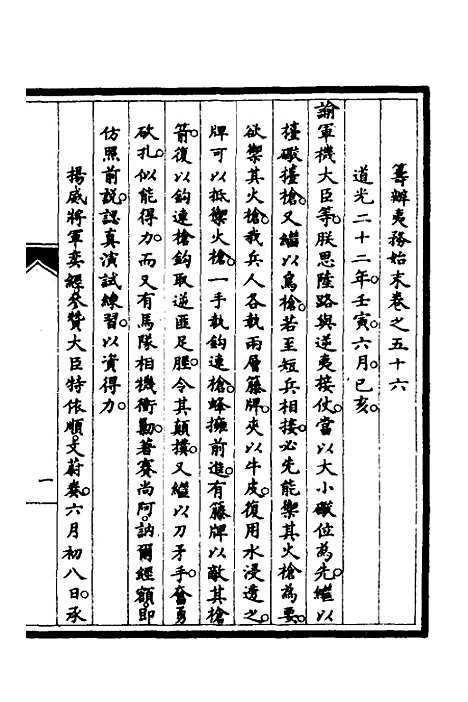 籌辦夷務始末卷之五十六
道光二十二年壬寅六月己亥
諭軍機大臣等朕思陸路與逆夷接仗當以大小礮位為先繼以
擡礮擡槍又繼以鳥槍若至短兵相接必先能禦其火槍為要
欲禦其火槍我兵人各執兩層籐牌夾以牛皮復用水浸透之
牌可以抵禦火槍一手執鉤連槍蜂擁前進有籐牌以敵其槍
箭復以鉤連槍鉤取逆匪足脛令其顛撲又繼以刀矛手奮勇
砍扎似能得力而又有馬隊相機衝勦著賽尚阿訥爾經額即
仿照前說認真演試練習以資得力
揚威將軍奕經參贊大臣特依順文蔚奏六月初八日承
一